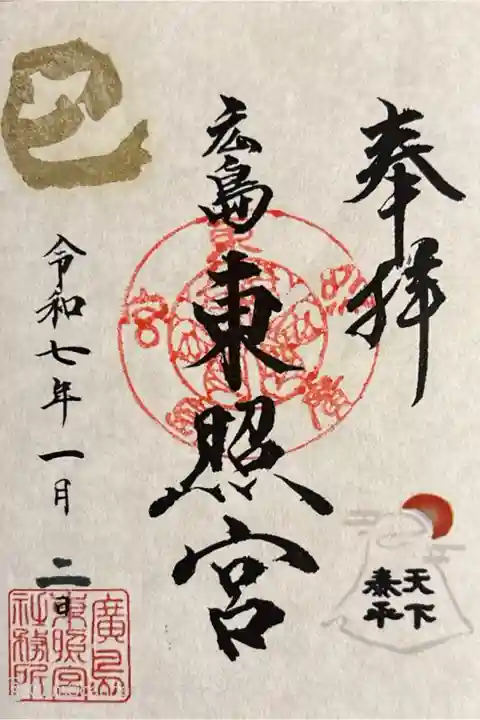 奉拝
広島東照宮
巳
令和七年一月二日
天下
泰平
廣島
東照宮
社務所